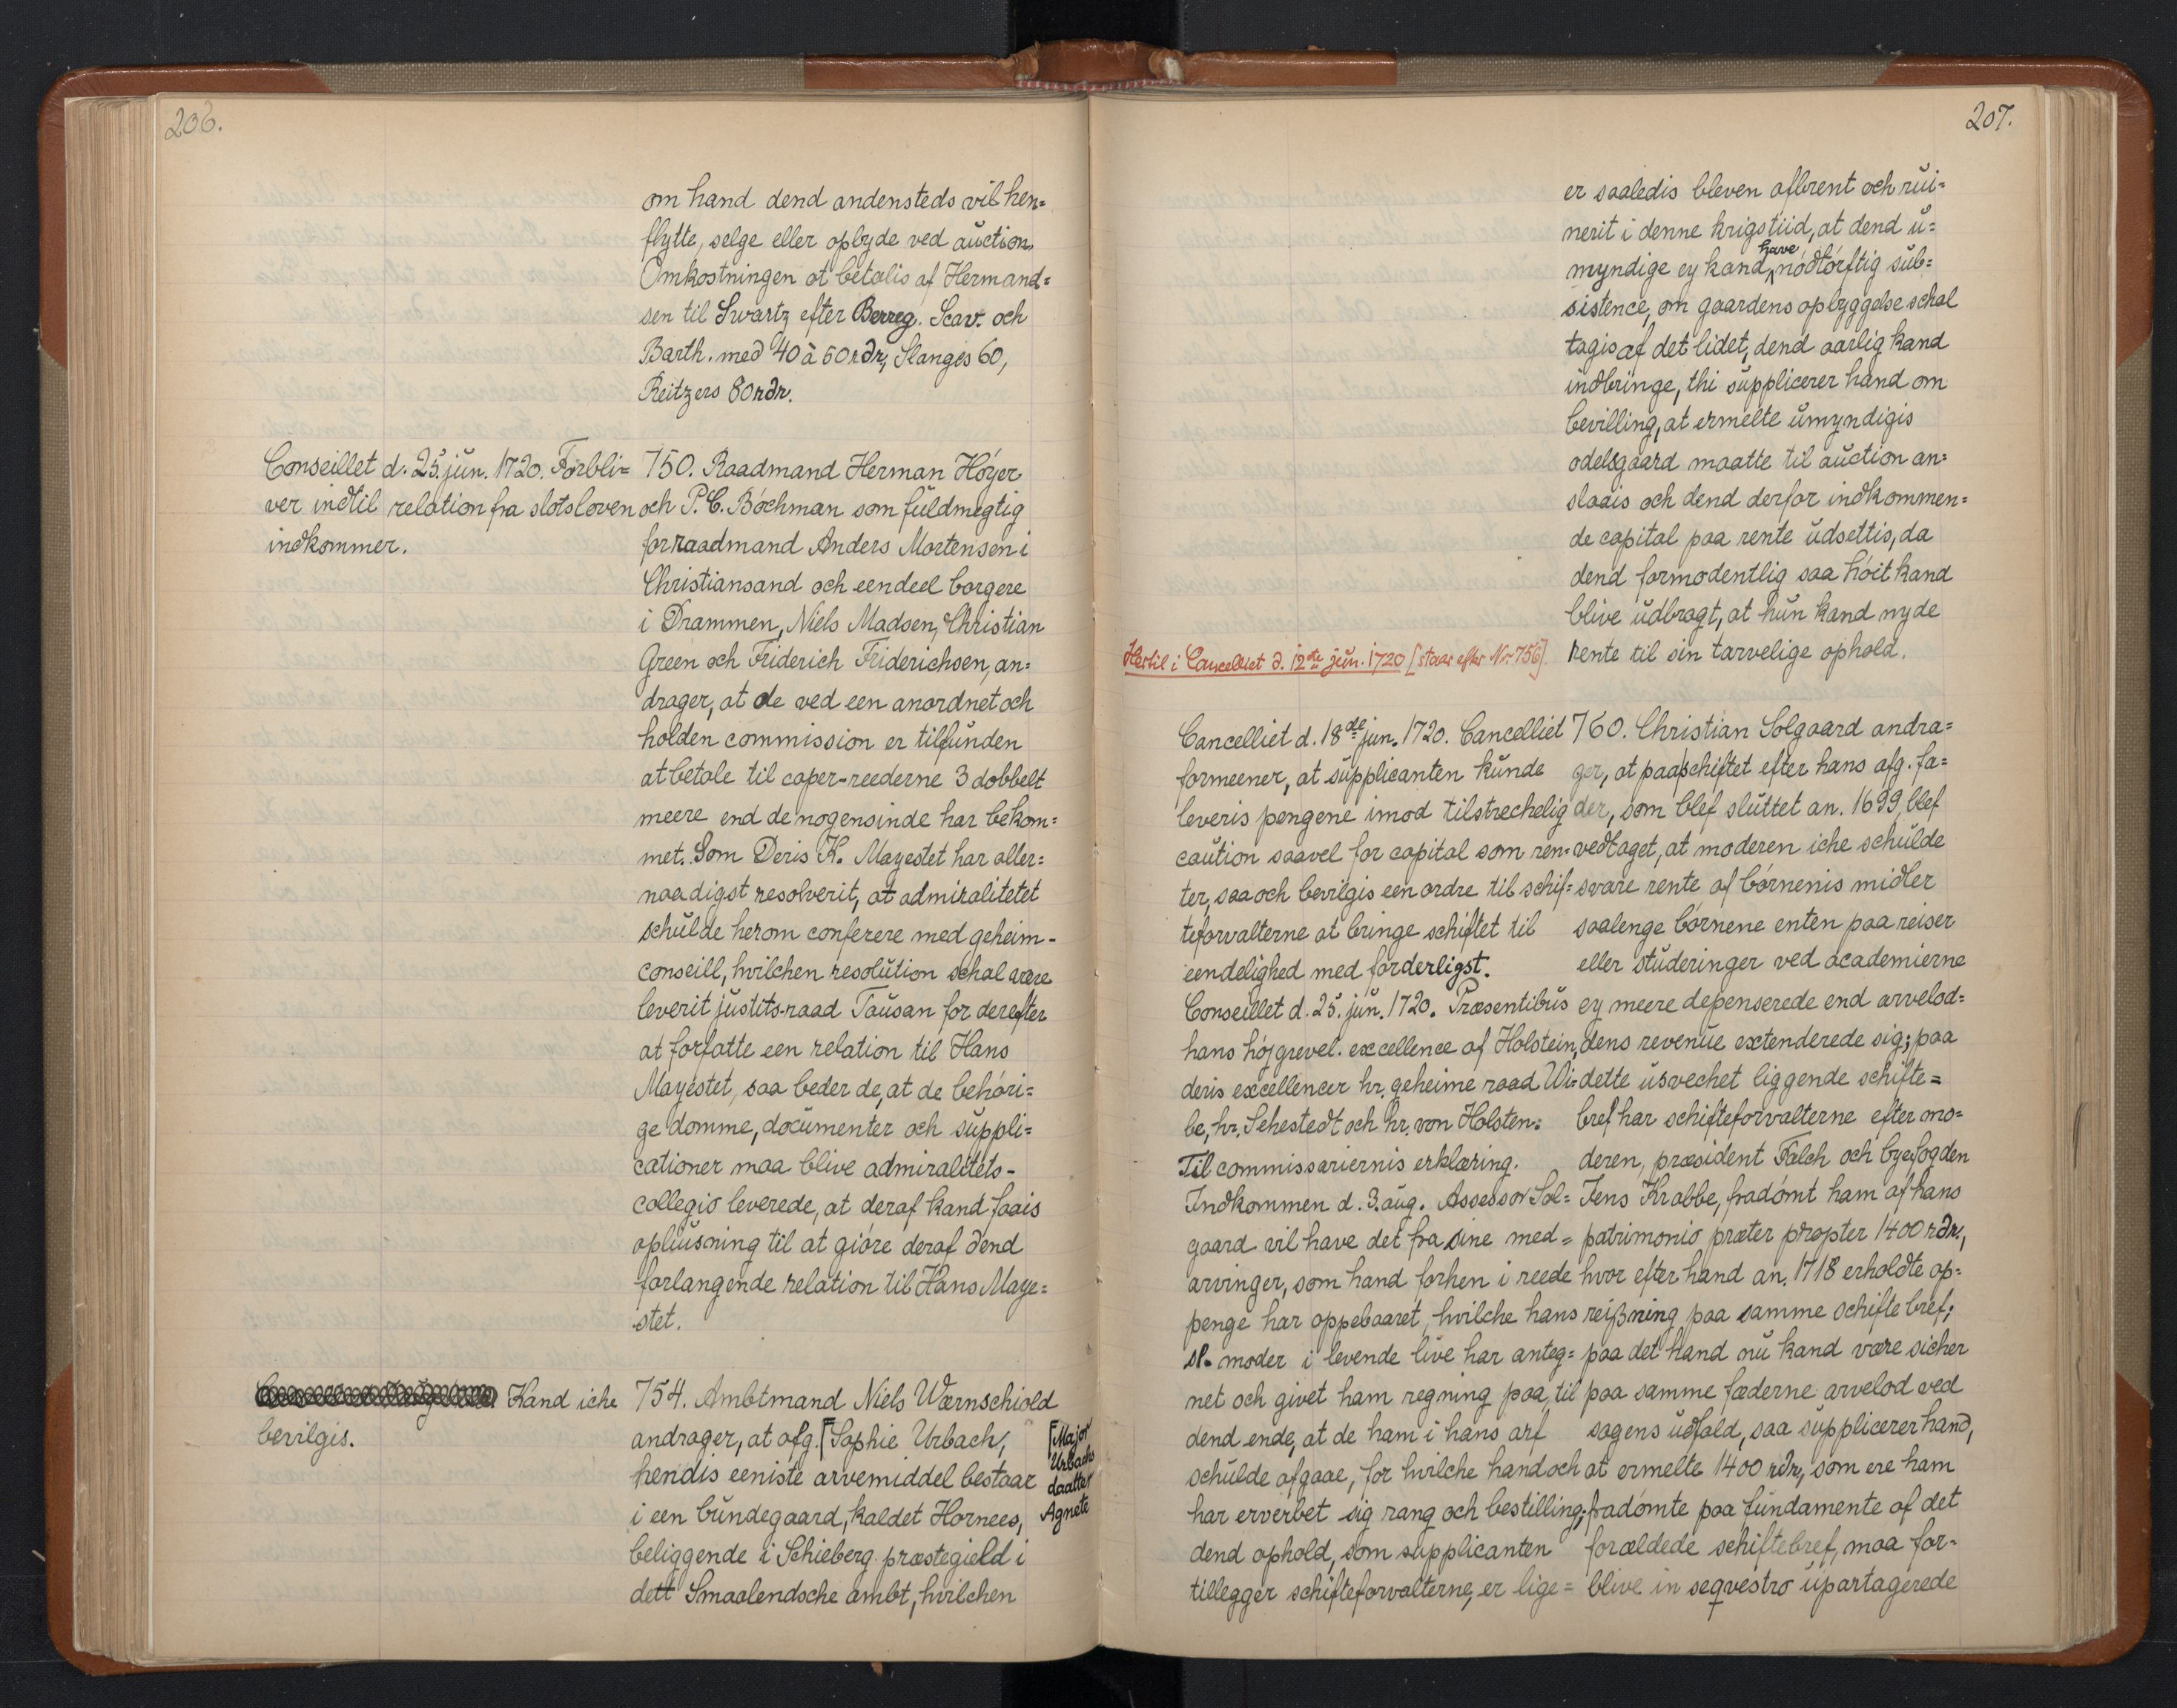 206.
om hand dend andensteds vil hen=
flytte, selge eller opbyde ved auction.
Omkostningen at betalis af Hermand=
sen til Swartz efter Berreg. Scav. och
Barth. med 40 à 50 rdr, Slanges 60,
Reitzers 80 rdr.
Conseillet d. 25. jun. 1720. Forbli=
ver indtil relation fra slotsloven
indkommer.
750. Raadmand Herman Höyer
och P. C. Böchman som fuldmegtig
for raadmand Anders Mortensen i
Christiansand och eendeel borgere
i Drammen, Niels Madsen, Christian
Green och Friderich Friderichsen, an=
drager, at de ved een anordnet och
holden commission er tilfunden
at betale til caper-reederne 3 dobbelt
meere end de nogensinde har bekom=
met. Som Deris K. Mayestet har aller=
naadigst resolverit, at admiralitetet
schulde herom conferere med geheim-
conseill, hvilchen resolution schal være
leverit justits-raad Tausan for derefter
at forfatte een relation til Hans
Mayestet, saa beder de, at de behöri=
ge domme, documenter och suppli=
cationer maa blive admiralitets-
collegio leverede, at deraf kand faais
opliusning til at giöre deraf dend
forlangende relation til Hans Maye=
stet.
Kand iche
bevilgis.
754. Ambtmand Niels Wærnschiold
andrager, at afg. [Sophie Urbach,
hendis eeniste arvemiddel bestaar
i een bundegaard, kaldet Hornees,
beliggende i Schieberg præstegield i
dett Smaalendsche ambt, hvilchen
[Major
Urbachs
daatter
Agnete
207.
er saaledis bleven afbrent och rui=
nerit i denne krigstiid, at dend u=
myndige ey kand have nödtörftig sub=
sistence, om gaardens opbyggelse schal
tagis af det lidet, dend aarlig kand
indbringe, thi supplicerer hand om
bevilling, at ermelte umyndigis
odelsgaard maatte til auction an=
slaais och dend derfor indkommen=
de capital paa rente udsettis, da
dend formodentlig saa höit kand
blive udbragt, at hun kand nyde
rente til sin tarvelige ophold.
Hertil i Cancelliet d. 12te jun. 1720 [staar efter Nr 756].
Cancelliet d. 18de jun. 1720. Cancelliet
formeener, at supplicanten kunde
leveris pengene imod tilstrechelig
caution saavel for capital som ren=
ter, saa och bevilgis een ordre til schif=
teforvalterne at bringe schiftet til
eendelighed med forderligst.
Conseillet d. 25. jun. 1720. Præsentibus
hans höjgrevel. excellence af Holstein,
deris excellencer hr. geheime raad Wi=
be, hr. Sehestedt och hr. von Holsten:
Til commissariernis erklæring.
Indkommen d. 3. aug. Assessor Sol=
gaard vil have det fra sine med=
arvinger, som hand forhen i reede
penge har oppebaaret, hvilche hans
sl. moder i levende live har anteg=
net och givet ham regning paa, til
dend ende, at de ham i hans arf
schulde afgaae, for hvilche hand och
har erverbet sig rang och bestilling;
dend ophold, som supplicanten
tillegger schifteforvalterne, er lige=
760. Christian Solgaard andra=
ger, at paa schiftet efter hans afg. fa=
der, som blef sluttet an. 1699, blef
vedtaget, at moderen iche schulde
svare rente af börnenis midler
saalenge börnene enten paa reiser
eller studeringer ved academierne
ey meere depenserede end arvelod=
dens revenue extenderede sig; paa
dette usvechet liggende schifte=
bref har schifteforvalterne efter mo=
deren, præsident Falch och byefogden
Jens Krabbe, fradömt ham af hans
patrimonio præter propter 1400 rdr.,
hvor efter hand an. 1718 erholdte op=
reißning paa samme schifte bref;
paa det hand nu kand være sicher
paa samme fæderne arvelod ved
sagens udfald, saa supplicerer hand,
at ermelte 1400 rdr, som ere ham
fradömte paa fundamente af det
forældede schiftebref, maa for-
blive in seqvestro upartagerede